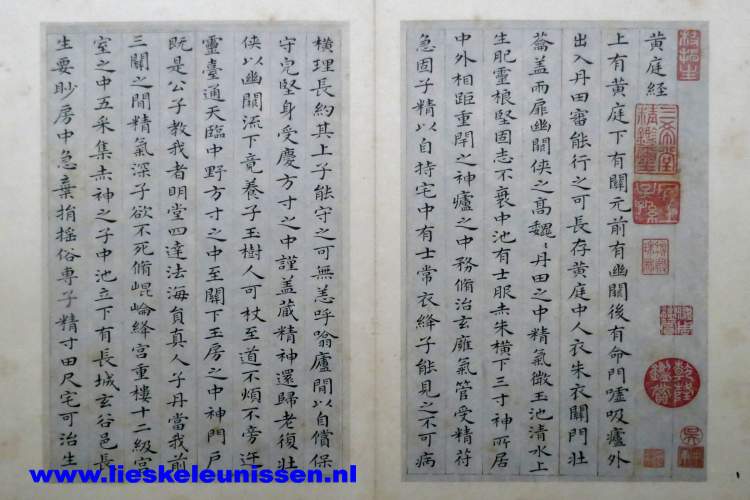 黄庭経
上有黄庭下有關元前有幽關後有命門嘘吸廬外
出入丹田審能行之可長存黄庭中人衣朱衣關門壮
蘥盖兩扉幽關侠之髙魏丶丹田之中精氣微玉池清水上
生肥靈根堅固志不衰中池有士服赤朱横下三寸神所居
中外相距重閇之神廬之中務脩治玄廱氣管受精苻
急固子精以自持宅中有士常衣絳子能見之不可病
横理長約其上子能守之可無恙呼噏廬間以自償保
守完堅身受慶方寸之中謹盖蔵精神還歸老復壮
侠以幽關流下竟養子玉樹人可杖至道不煩不旁迕
靈臺通天臨中野方寸之中至關下玉房之中神門户
既是公子教我者明堂四達法海負真人子丹當我前
三關之間精氣深子欲不死脩崐崘絳宫重樓十二級宫
室之中五采集赤神之子中池立下有長城玄谷邑長
生要眇房中急棄捐摇俗專子精寸田尺宅可治生
乾隆
鑑賞
www.lieskeleunissen.nl